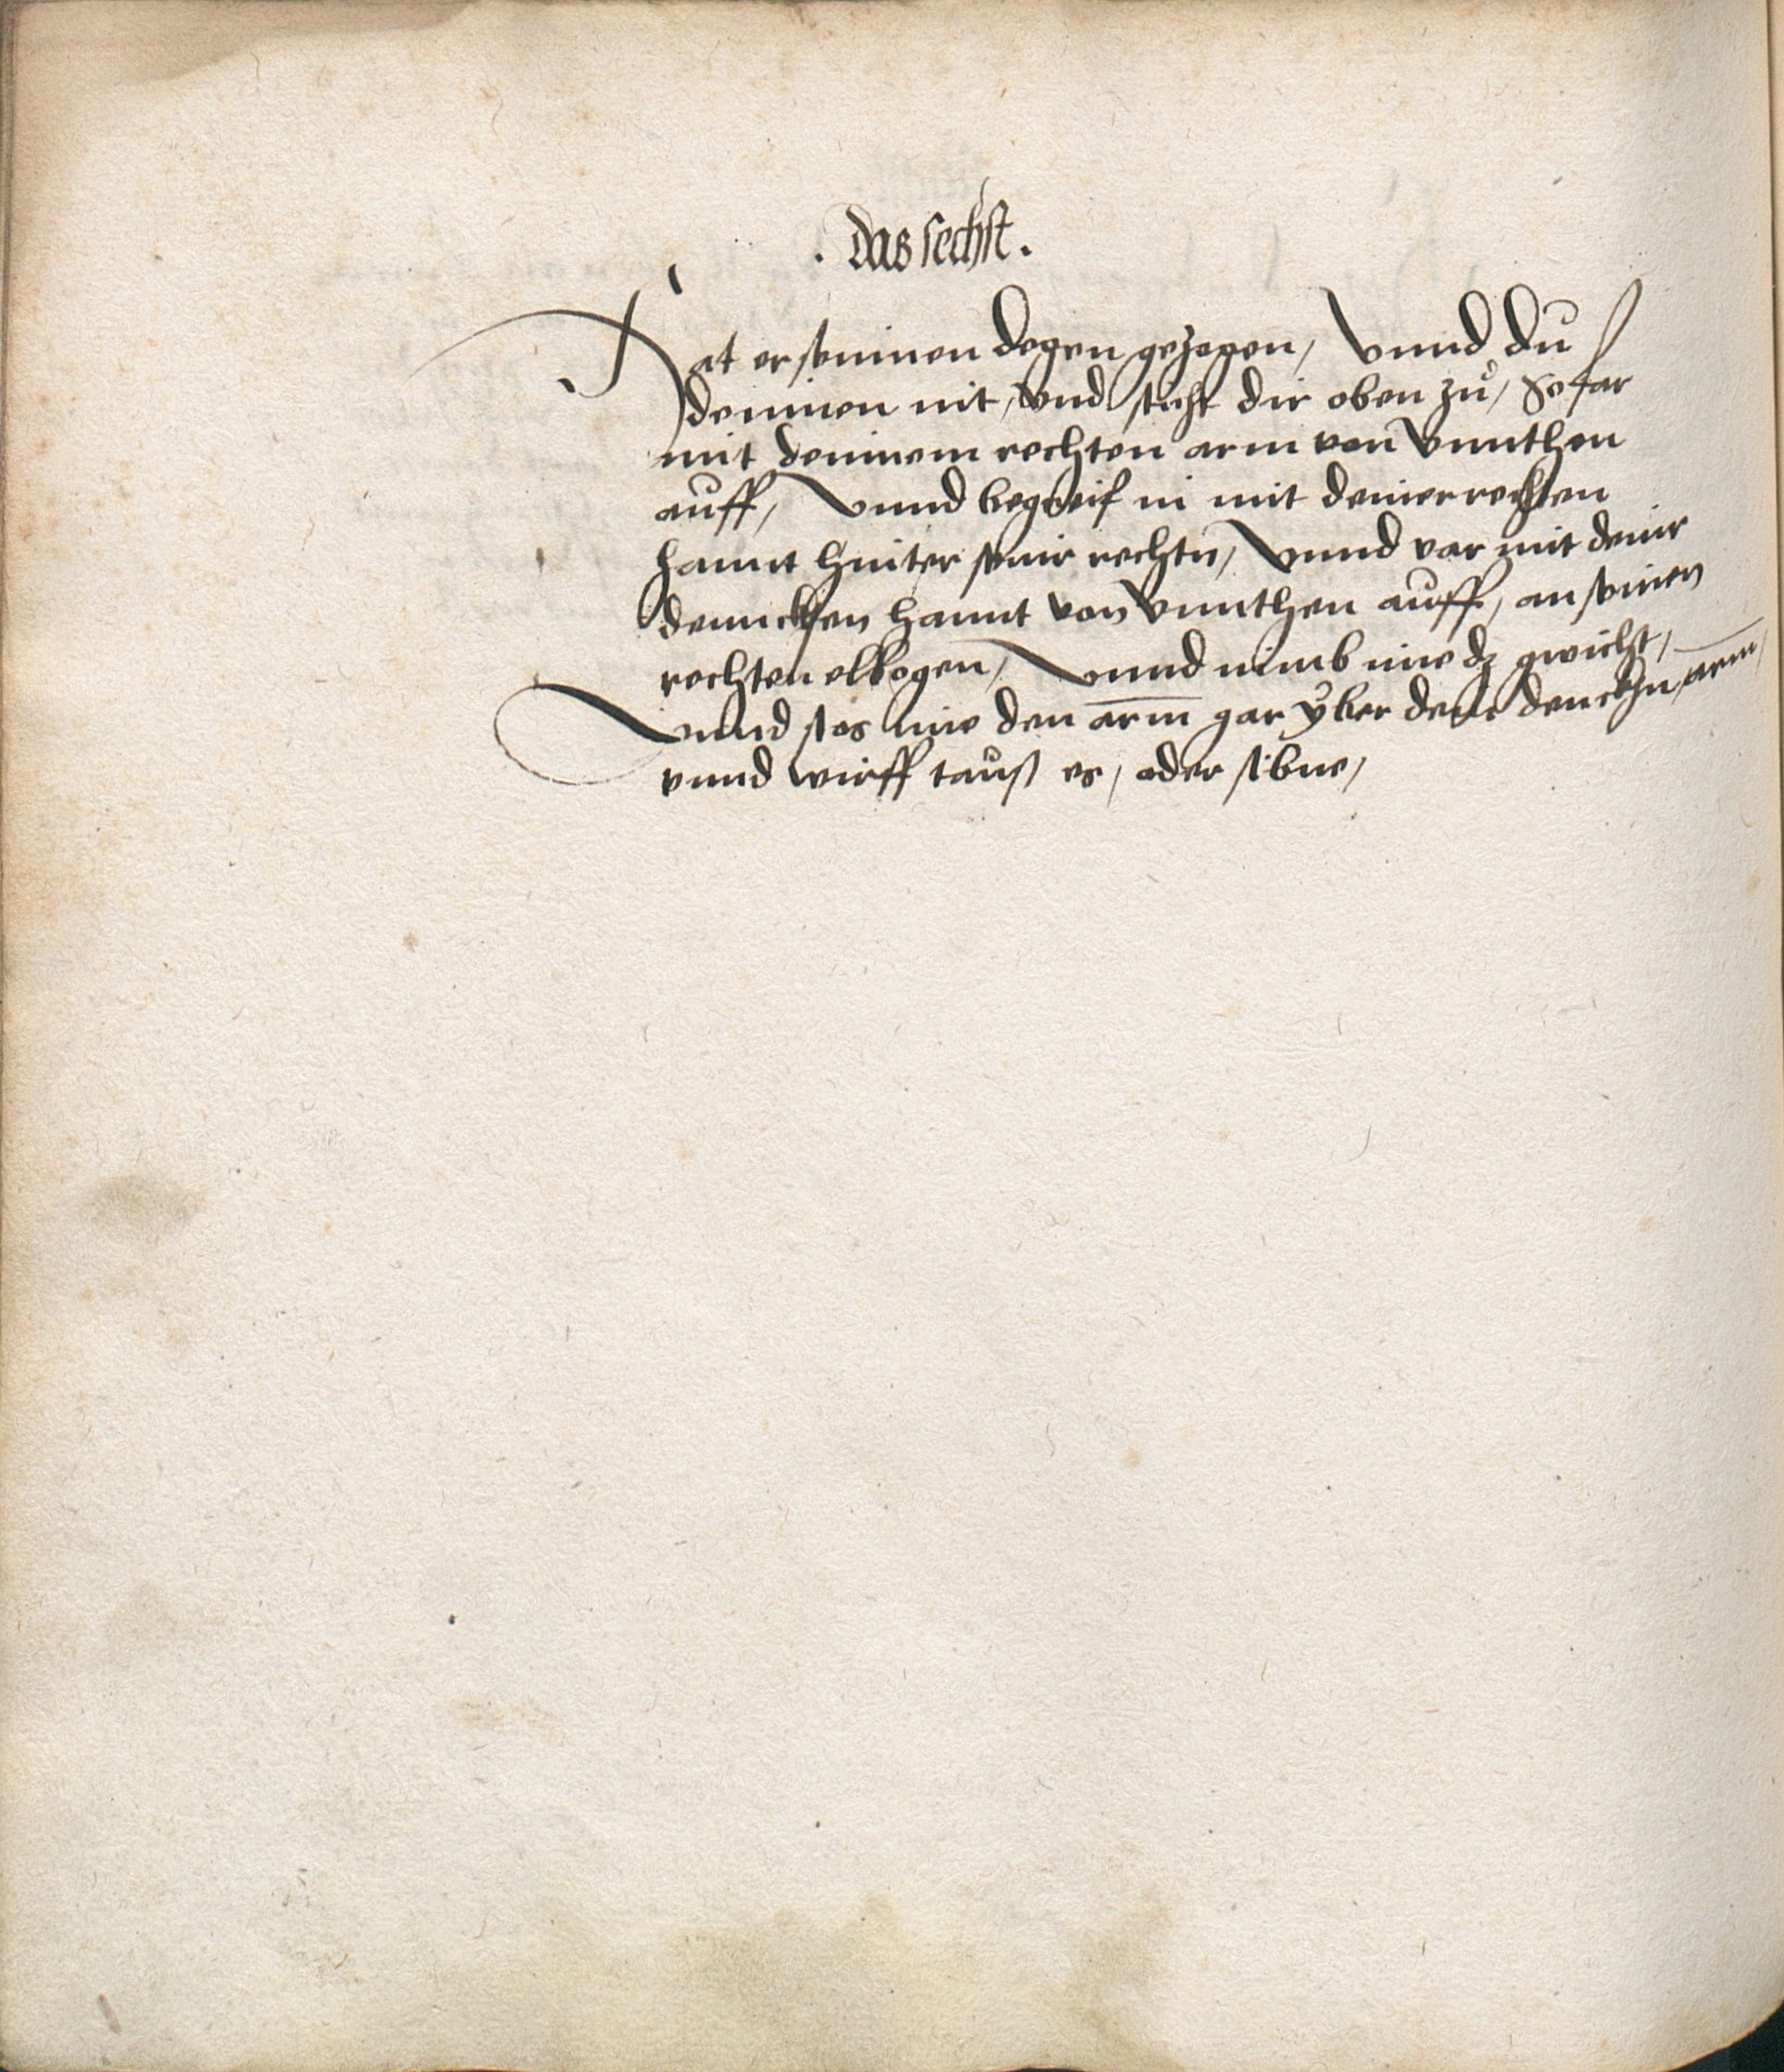 . Das sechst .
Hat er seinnen degen gezogen, Vnnd du
deinnen nit, vnd sticht dir oben zů, So far
mit deinnem rechten arm von Vnnthen
auff, Vnnd begreif in mit deiner rechten
hannt hinter seinr rechtn, Vnnd var mit deinr
dennckhen hannt von Vnnthen auff, an seinen
rechten elbogen, Vnnd nimb ime dz gwicht,
Vnnd stos ime den arm gar yber dein denckhn arm,
vnnd wirff tauß es, oder sibne,